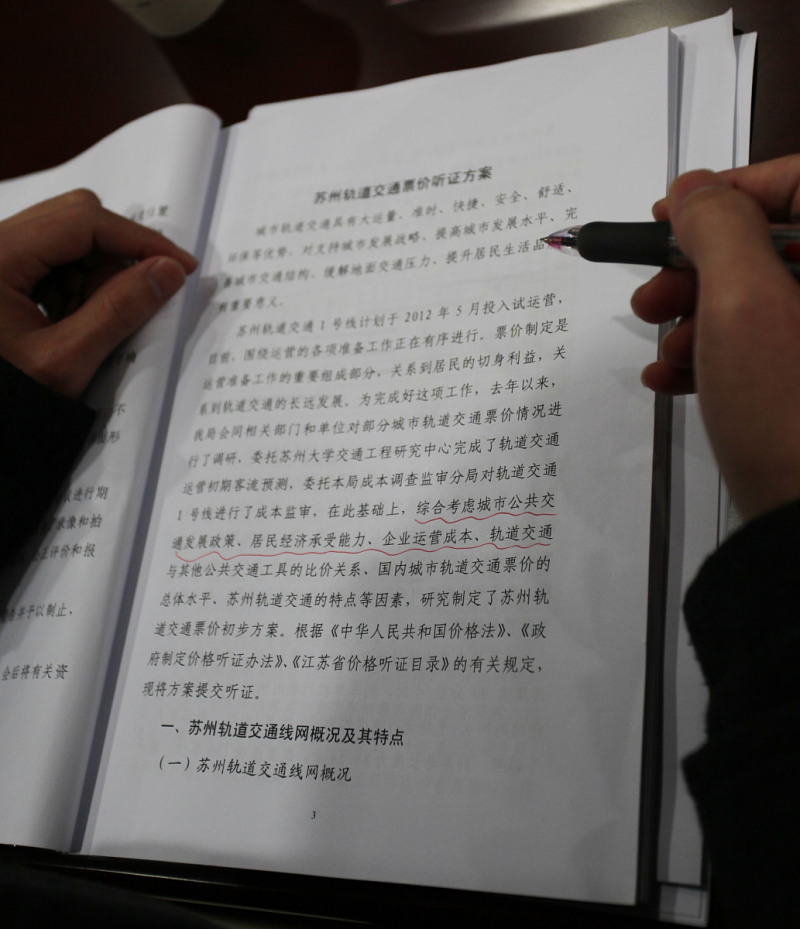 苏州轨道交通票价听证方案
城市轨道交通具有大运量、准时、快捷、安全、舒适、
环保等优势，对支持城市发展战略、提高城市发展水平、完
善城市交通结构、缓解地面交通压力、提升居民生活品
有重要意义。
苏州轨道交通1号线计划于2012年5月投入试运营，
目前，围绕运营的各项准备工作正在有序进行。票价制定是
运营准备工作的重要组成部分，关系到居民的切身利益，关
系到轨道交通的长远发展。为完成好这项工作，去年以来，
我局会同相关部门和单位对部分城市轨道交通票价情况进
行了调研，委托苏州大学交通工程研究中心完成了轨道交通
运营初期客流预测，委托本局成本调查监审分局对轨道交通
1号线进行了成本监审，在此基础上，综合考虑城市公共交
通发展政策、居民经济承受能力、企业运营成本、轨道交通
与其他公共交通工具的比价关系、国内城市轨道交通票价的
总体水平、苏州轨道交通的特点等因素，研究制定了苏州轨
道交通票价初步方案。根据《中华人民共和国价格法》、《政
府制定价格听证办法》、《江苏省价格听证目录》的有关规定，
现将方案提交听证。
一、苏州轨道交通线网概况及其特点
（一）苏州轨道交通线网概况
3
不
进行期
录像和拍
正评价和报
并予以制止、
会后将有关资